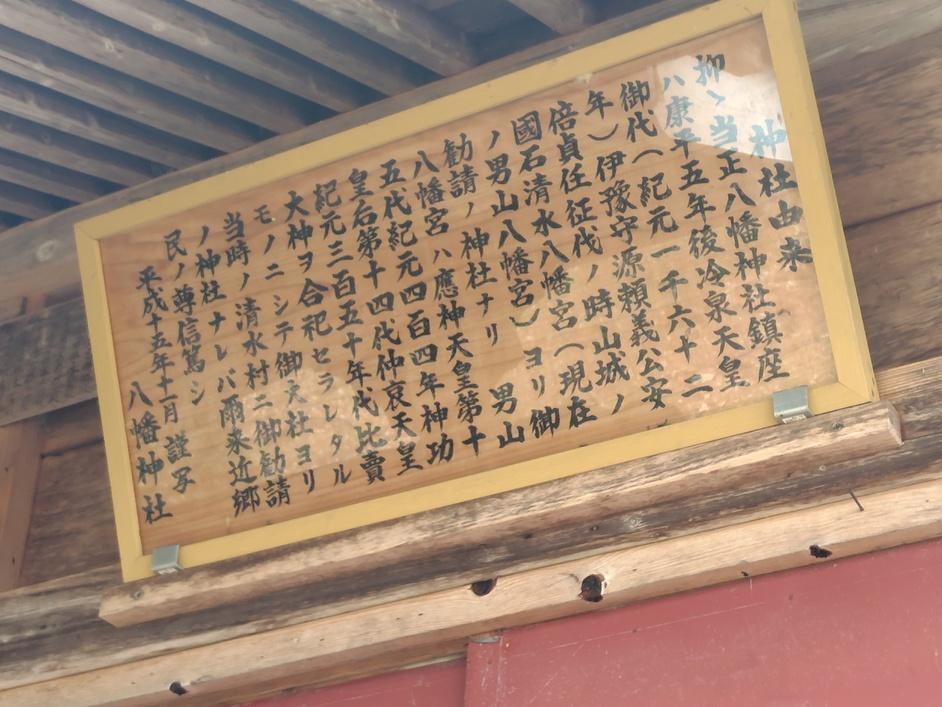 神社由来
抑々当正八幡神社鎮座
ハ康平五年後冷泉天皇
御代(紀元一千六十二
年)伊豫守源頼義公安
倍貞任征伐ノ時山城ノ
國石清水八幡宮(現在
ノ男山八幡宮)ヨリ御
勧請ノ神社ナリ 男山
八幡宮ハ應神天皇第十
五代紀元四百四年神功
皇后第十四代仲哀天皇
紀元三百五十年代比賣
大神ヲ合祀セラレタル
モノニシテ御大社ヨリ
当時ノ清水村ニ御勧請
ノ神社ナレバ爾来近郷
民ノ尊信篤シ
平成十五年十二月 謹写
八幡神社